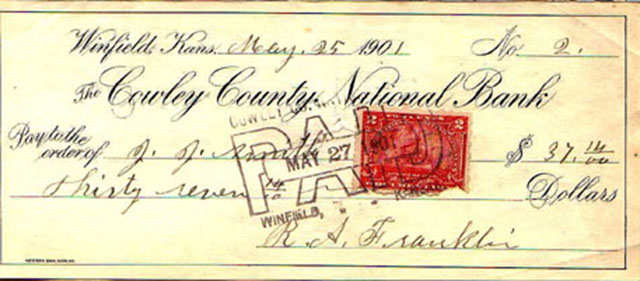 Winfield, Kans. May. 25 1901 No. 2.
The Cowley County National Bank
Pay to the order of J. J. $ 37.14/00
Thirty seven 14/00 Dollars
PAID
MAY 27 1901
WINFIELD, KANS
2 2
R. A. Franklin